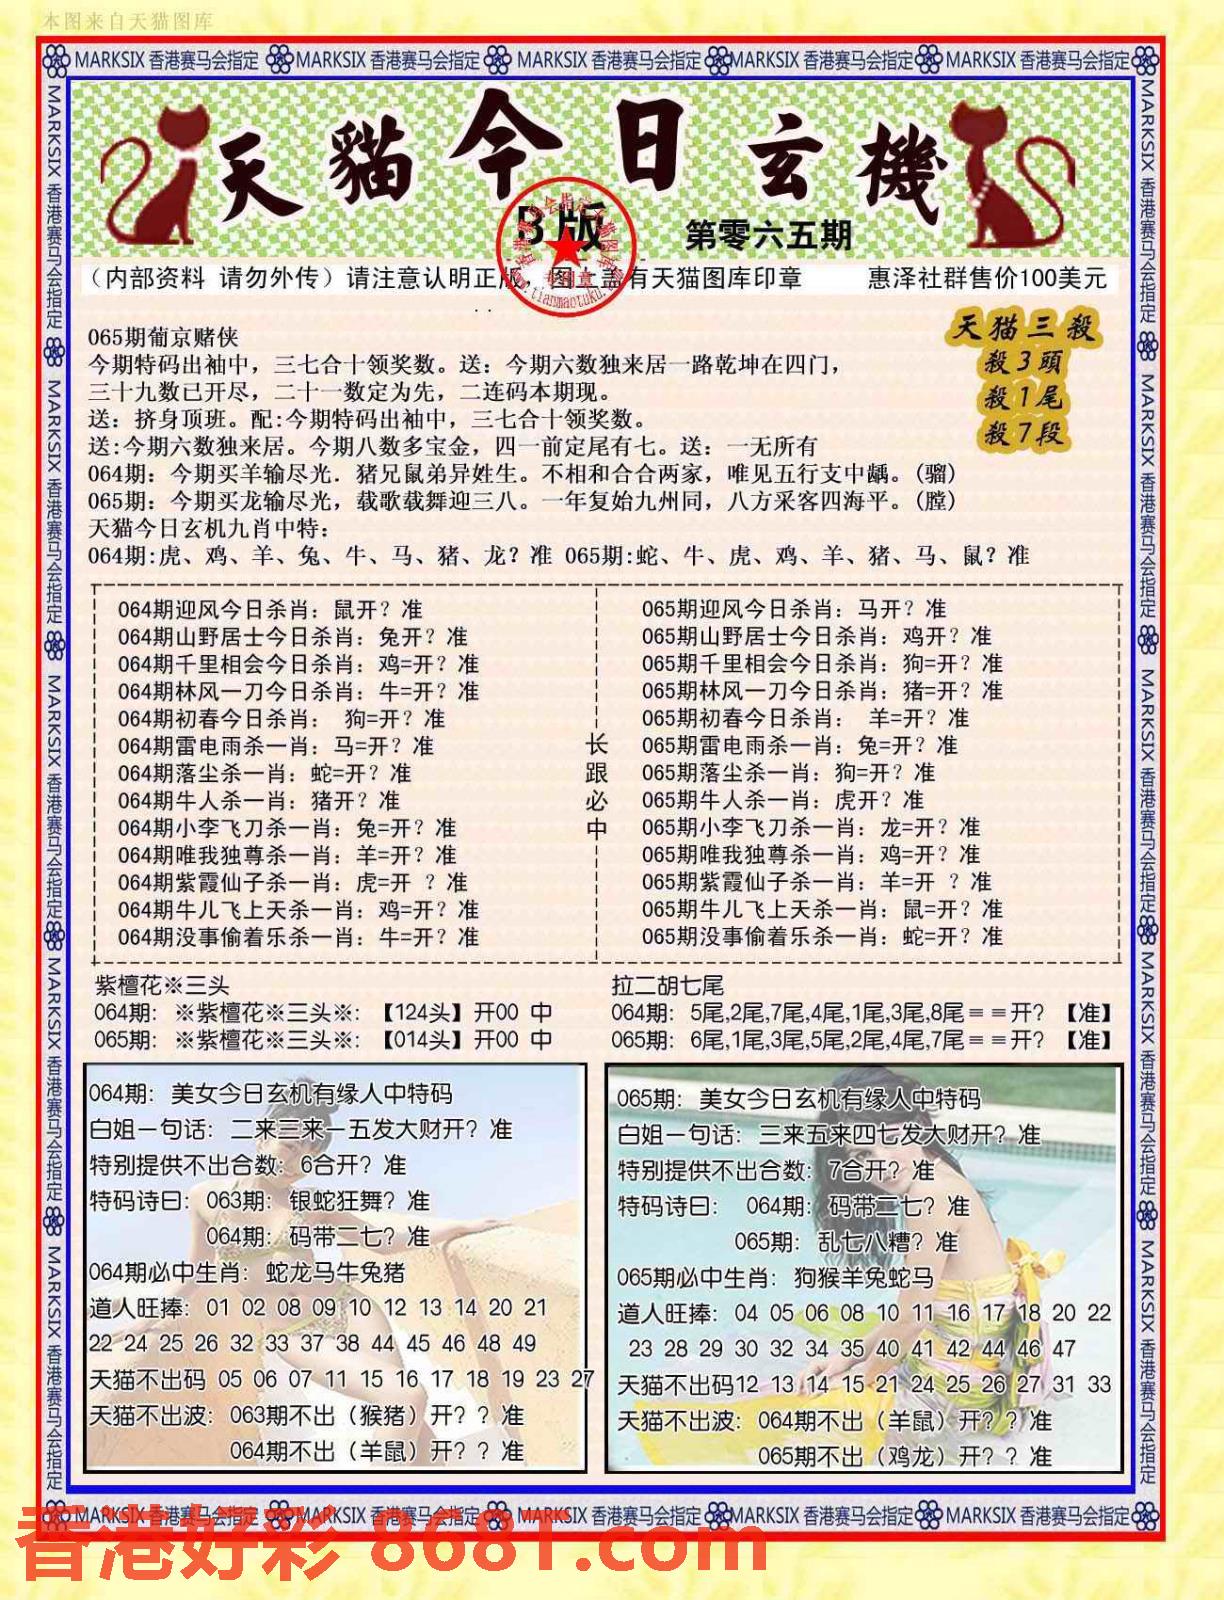 本图来自天猫图库
MARKSIX 香港赛马会指定 MARKSIX 香港赛马会指定 MARKSIX 香港赛马会指定 MARKSIX 香港赛马会指定 MARKSIX 香港赛马会指定
天貓今日玄機
B版
第零六五期
（内部资料 请勿外传）请注意认明正版 图上盖有天猫图库印章 惠泽社群售价100美元
天猫三殺
殺3頭
殺1尾
殺7段
065期葡京赌侠
今期特码出袖中，三七合十领奖数。送：今期六数独来居一路乾坤在四门，
三十九数已开尽，二十一数定为先，二连码本期现。
送：挤身顶班。配:今期特码出袖中，三七合十领奖数。
送:今期六数独来居。今期八数多宝金，四一前定尾有七。送：一无所有
064期：今期买羊输尽光．猪兄鼠弟异姓生。不相和合合两家，唯见五行支中龋。(骝)
065期：今期买龙输尽光，载歌载舞迎三八。一年复始九州同，八方采客四海平。(膛)
天猫今日玄机九肖中特：
064期:虎、鸡、羊、兔、牛、马、猪、龙？准 065期:蛇、牛、虎、鸡、羊、猪、马、鼠？准
064期迎风今日杀肖：鼠开？准
064期山野居士今日杀肖：兔开？准
064期千里相会今日杀肖：鸡=开？准
064期林风一刀今日杀肖：牛=开？准
064期初春今日杀肖： 狗=开？准
064期雷电雨杀一肖：马=开？准
064期落尘杀一肖：蛇=开？准
064期牛人杀一肖：猪开？准
064期小李飞刀杀一肖：兔=开？准
064期唯我独尊杀一肖：羊=开？准
064期紫霞仙子杀一肖：虎=开 ？准
064期牛儿飞上天杀一肖：鸡=开？准
064期没事偷着乐杀一肖：牛=开？准
长跟必中
065期迎风今日杀肖：马开？准
065期山野居士今日杀肖：鸡开？准
065期千里相会今日杀肖：狗=开？准
065期林风一刀今日杀肖：猪=开？准
065期初春今日杀肖： 羊=开？准
065期雷电雨杀一肖：兔=开？准
065期落尘杀一肖：狗=开？准
065期牛人杀一肖：虎开？准
065期小李飞刀杀一肖：龙=开？准
065期唯我独尊杀一肖：鸡=开？准
065期紫霞仙子杀一肖：羊=开 ？准
065期牛儿飞上天杀一肖：鼠=开？准
065期没事偷着乐杀一肖：蛇=开？准
紫檀花※三头
064期：※紫檀花※三头※:【124头】开00 中
065期：※紫檀花※三头※:【014头】开00 中
拉二胡七尾
064期：5尾,2尾,7尾,4尾,1尾,3尾,8尾＝＝开？【准】
065期：6尾,1尾,3尾,5尾,2尾,4尾,7尾＝＝开？【准】
064期：美女今日玄机有缘人中特码
白姐一句话：二来三来一五发大财开？准
特别提供不出合数：6合开？准
特码诗曰：063期：银蛇狂舞？准
064期：码带二七？准
064期必中生肖：蛇龙马牛兔猪
道人旺捧：01 02 08 09 10 12 13 14 20 21
22 24 25 26 32 33 37 38 44 45 46 48 49
天猫不出码 05 06 07 11 15 16 17 18 19 23 27
天猫不出波：063期不出（猴猪）开？？准
064期不出（羊鼠）开？？准
065期：美女今日玄机有缘人中特码
白姐一句话：三来五来四七发大财开？准
特别提供不出合数：7合开？准
特码诗曰： 064期：码带二七？准
065期：乱七八糟？准
065期必中生肖：狗猴羊兔蛇马
道人旺捧：04 05 06 08 10 11 16 17 18 20 22
23 28 29 30 32 34 35 40 41 42 44 46 47
天猫不出码12 13 14 15 21 24 25 26 27 31 33
天猫不出波：064期不出（羊鼠）开？？准
065期不出（鸡龙）开？？准
MARKSIX 香港赛马会指定 MARKSIX 香港赛马会指定 MARKSIX 香港赛马会指定 MARKSIX 香港赛马会指定 MARKSIX 香港赛马会指定
香港好彩 868T.com
MARKSIX 香港赛马会指定 MARKSIX 香港赛马会指定 MARKSIX 香港赛马会指定 MARKSIX 香港赛马会指定 MARKSIX 香港赛马会指定
MARKSIX 香港赛马会指定 MARKSIX 香港赛马会指定 MARKSIX 香港赛马会指定 MARKSIX 香港赛马会指定 MARKSIX 香港赛马会指定